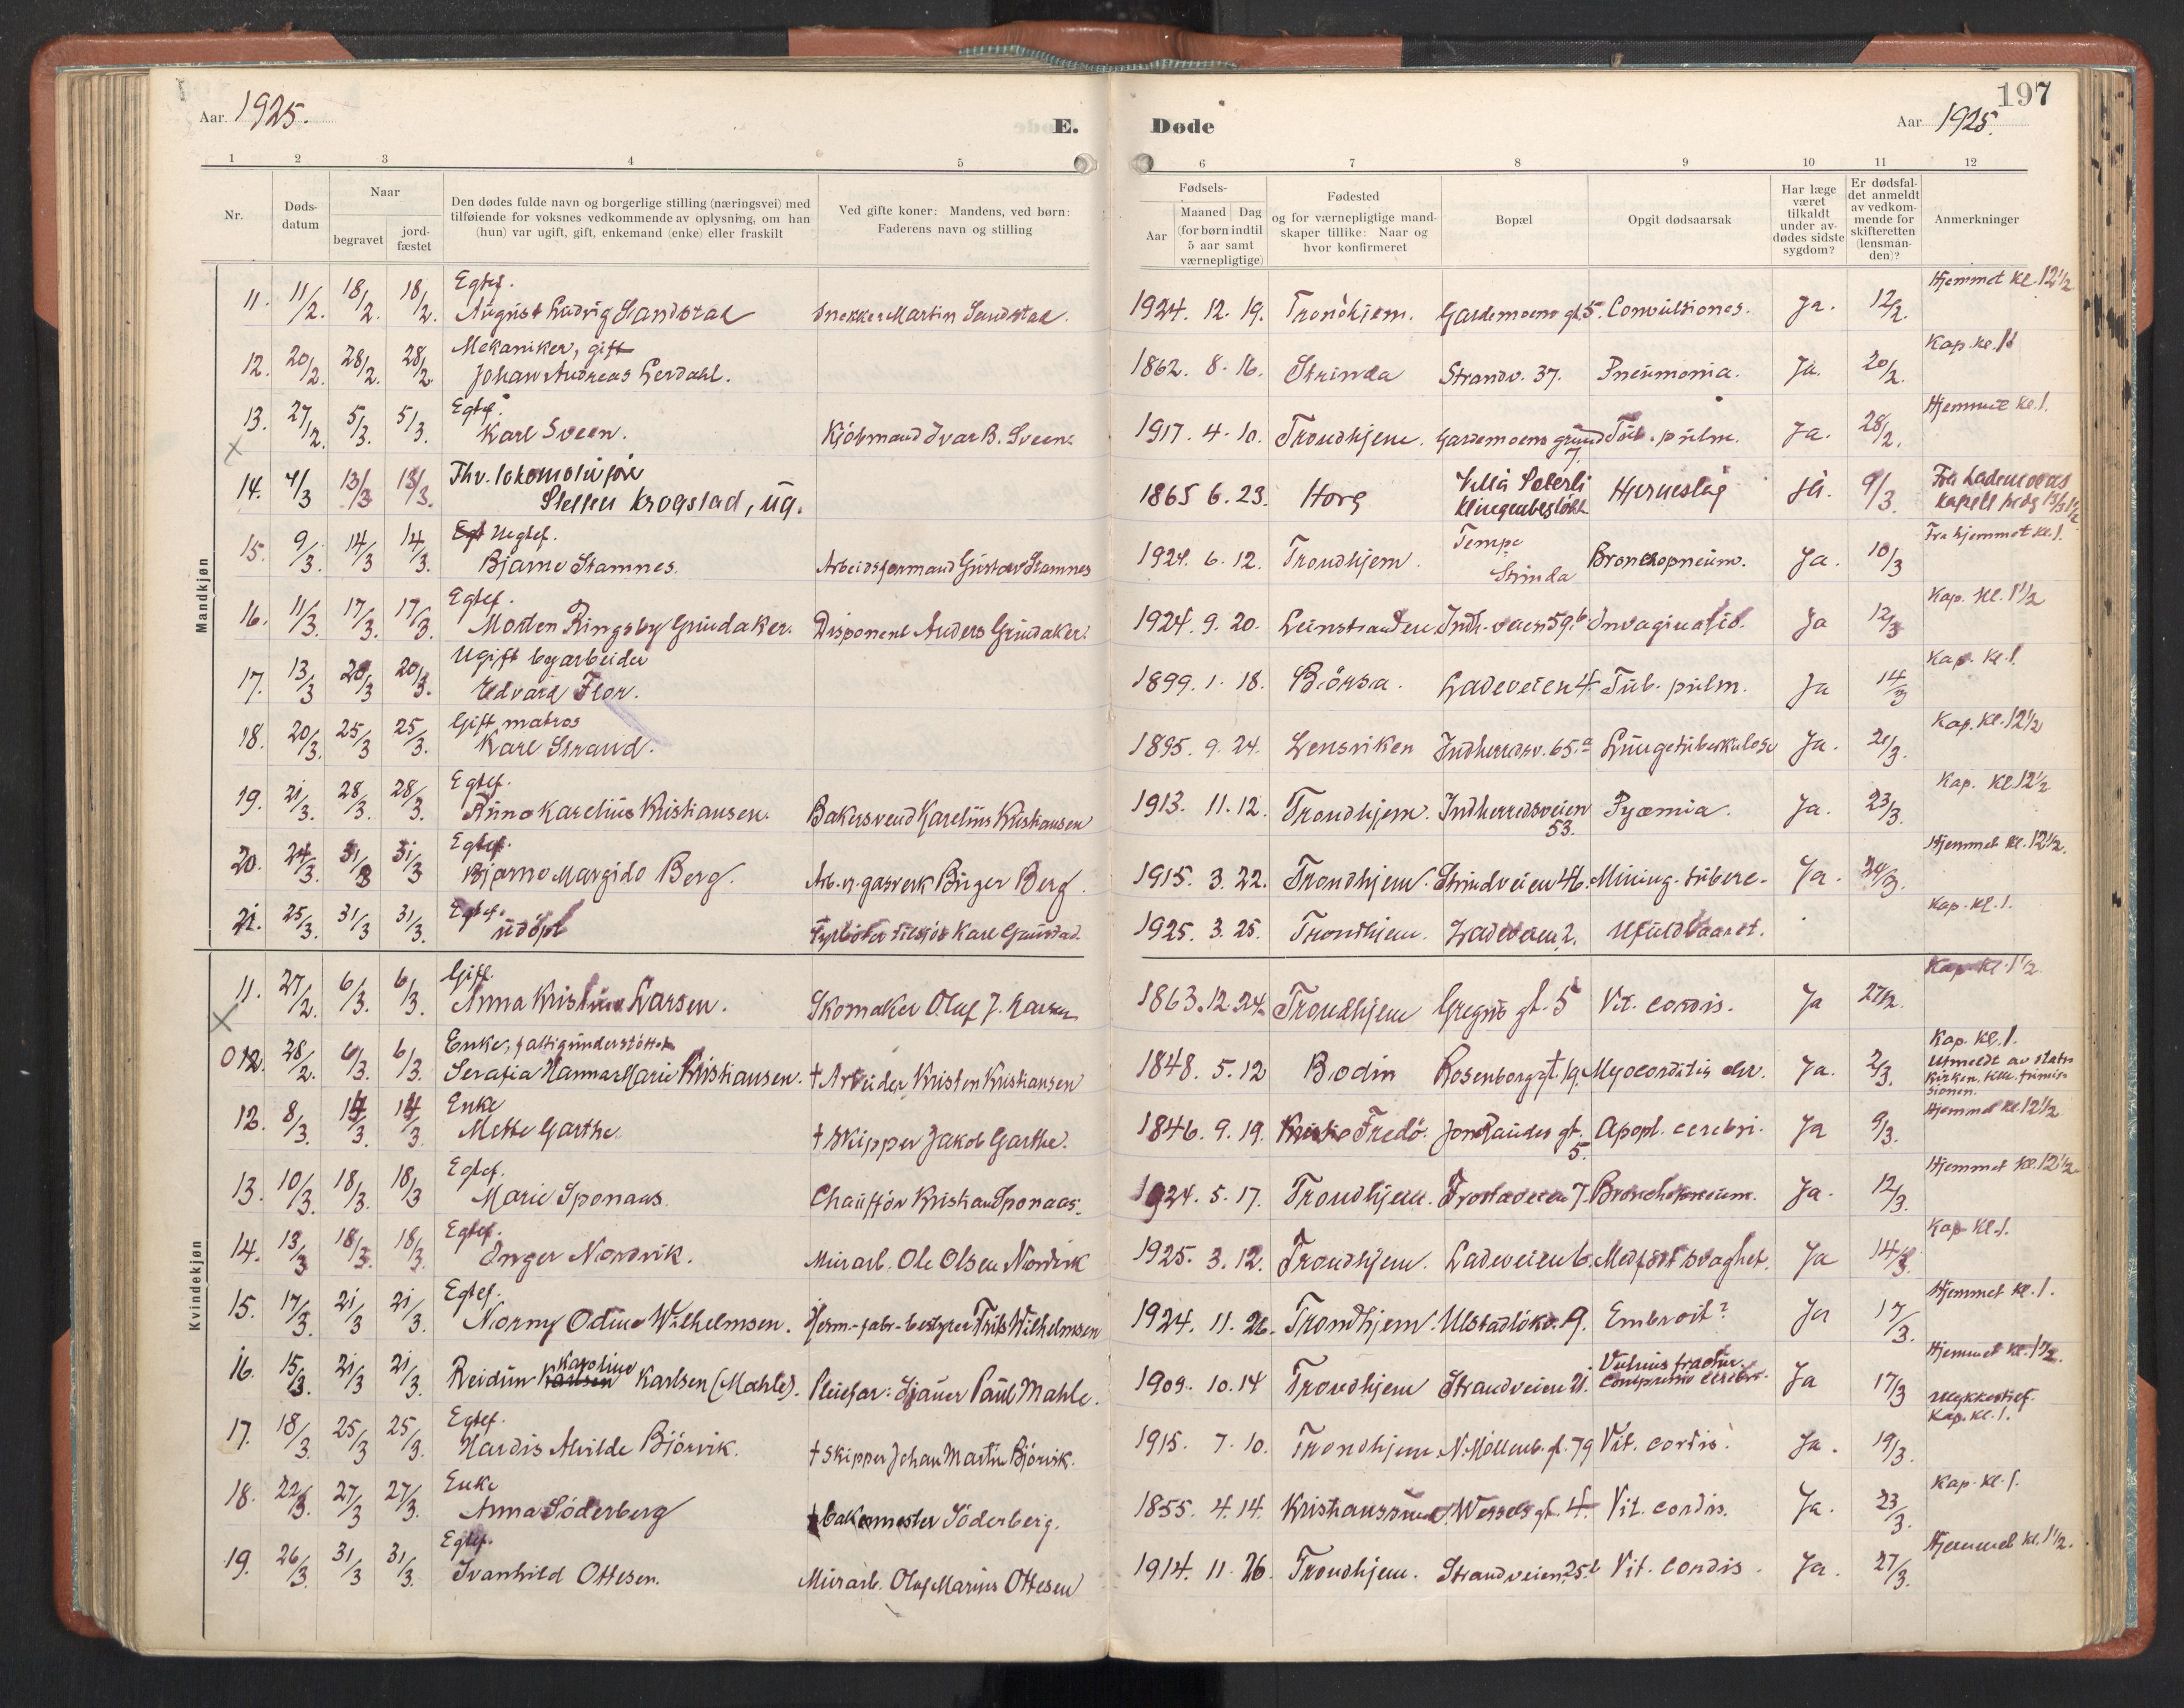 197
Aar. 1925.
E. Døde
Aar 1925.
1 2 3 4 5 6 7 8 9 10 11 12
Nr.
Døds-
datum
Naar
begravet
jord-
fæstet
Den dødes fulde navn og borgerlige stilling (næringsvei) med
tilføiende for voksnes vedkommende av oplysning, om han
(hun) var ugift, gift, enkemand (enke) eller fraskilt
Ved gifte koner: Mandens, ved børn:
Faderens navn og stilling
Fødsels-
Aar
Maaned Dag
(for børn indtil
5 aar samt
værnepligtige)
Fødested
og for værnepligtige mand-
skaper tillike: Naar og
hvor konfirmeret
Bopæl
Opgit dødsaarsak
Har læge
været
tilkaldt
under av-
dødes sidste
sygdom?
Er dødsfal-
det anmeldt
av vedkom-
mende for
skifteretten
(lensman-
den)?
Anmerkninger
Mandkjøn
Egtef. Hjemmet kl. 12 1/2
11. 11/2. 18/2. 18/2. August Ludvig Sandstad Snekker Martin Sandstad. 1924. 12. 19. Trondhjem. Gardemoens gt. 5. Convulsiones. Ja. 12/2.
Mekaniker, gift Kap. kl.
12. 20/2. 28/2. 28/2. Johan Andreas Lerdahl. 1862. 8. 16. Strinda Strandv. 37. Pneumonia. Ja. 20/2.
Egtef. Hjemmet kl. 1.
13. 27/2. 5/3. 5/3. Karl Sveen. Kjöbmand Ivar B. Sveen. 1917. 4. 10. Trondhjem. Gardemoens grund 7. Tub. pulm. Ja. 28/2.
Fhv. lokomotivförer Fra Lademoens
14. 7/3 13/3 13/3. Steffen Krogstad, ug. 1865 6. 23. Horg Villa Hjerneslag Ja. 9/3. kapell
Egt Uegtef. Tempe Fra hjemmet kl. 1.
15. 9/3. 14/3 14/3. Bjarne Stamnes. Arbeidsformand Gustav Stamnes 1924. 6. 12. Trondhjem. Strinda Bronchopneum. Ja. 10/3
Egtef. Kap. kl. 1 1/2
16. 11/3. 17/3. 17/3. Morten Ringsby Grudaker. Disponent Anders Grudaker. 1924. 9. 20. Leinstranden Indh.veien 59.b Invaginatio. Ja 12/3
Ugift byarbeider Kap. kl. 1.
17. 13/3 20/3 20/3. Edvard Flor. 1899. 1. 18. Börsa. Ladeveien 4. Tub. pulm. Ja 14/3
Gift matros Kap. kl. 12 1/2
18. 20/3. 25/3 25/3. Karl Strand. 1895. 9. 24. Lensviken Indherredsv. 65.a Lungetuberkulose Ja. 21/3.
Egtef. Kap. kl 12 1/2
19. 21/3. 28/3. 28/3. Arne Karelius Kristiansen. Bakersvend Karelius Kristiansen 1913. 11. 12. Trondhjem. Indherredsveien 53. Pyæmia. Ja. 23/3.
Egtef. Hjemmet kl. 12 1/2.
20. 24/3. 31/3 31/3 Bjarne Margido Berg. Arb. v. gasverk Birger Berg. 1915. 3. 22. Trondhjem. Strindveien 46. Mening. tuberc. Ja. 24/3.
Egtef. Kap. kl. 1.
21. 25/3. 31/3 31/3. udöpt Fyrböter tilsjös Karl Gaustad. 1925. 3. 25. Trondhjem. Ladeveien 2. Ufuldbaaret.
Kvindekjøn
Gift. Kap kl. 1 1/2
11. 27/2. 6/3. 6/3. Anna Kristine Larsen. Skomaker Olaf J. Larsen 1863. 12. 24. Trondhjem Gregus gt. 5 Vit. cordis. Ja 27/2.
Enke, fattigunderstöttet Kap. kl. 1.
0 12. 28/2. 6/3. 6/3. Serafia Hanna Marie Kristiansen. † Arbeider Kristen Kristiansen 1848. 5. 12 Bodin Rosenborggt 19. Myocarditis chr. Ja. 2/3. Utmeldt av stats
kirken,
Enke Hjemmet kl. 12 1/2
12. 8/3. 14/3. 14/3. Mette Garthe. † Skipper Jakob Garthe. 1846. 9. 19. Fredö. Jon Raudes gt. 5. Apopl. cerebri. Ja 9/3.
Egtef. Hjemmet kl. 12 1/2
13. 10/3. 18/3. 18/3 Marie Sponaas. Chauffór Kristian Sponaas. 1924. 5. 17. Trondhjem. Frostaveien 7. Bronchopneum. Ja. 12/3.
Egtef. Kap kl. 1.
14. 13/3 18/3. 18/3. Inger Nordvik. Murarb. Ole Olsen Nordvik 1925. 3. 12. Trondhjem. Ladeveien 6. Medfödt svaghet. Ja 14/3.
Egtef. Hjemmet kl. 1.
15. 17/3. 21/3 21/3. Norny Odine Wilhelmsen. Herm.-fabr.-bestyrer Frits Wilhelmsen 1924. 11. 26. Trondhjem. Ulstadlökv. 9. Ja 17/3.
Hjemmet kl. 1 1/2.
16. 15/3. 21/3 21/3. Reidun Karlsen Karoline Karlsen (Mahle). Pleiefar: Sjauer Paul Mahle. 1909. 10. 14 Trondhjem Strandveien 21. Ja 17/3 Ulykkestilf.
Egtef. Kap. kl. 1.
17. 18/3. 25/3 25/3. Hardis Alvilde Björvik. † Skipper Johan Martin Björvik. 1915. 7. 10. Trondhjem N. Möllenb. gt. 79 Vit. cordis. Ja. 19/3.
Enke Kap. kl. 1.
18. 22/3. 27/3 27/3. Anna Söderberg † bakermester Söderberg. 1855. 4. 14. Kristianssund. Wessels gt. 4. Vit. cordis. Ja. 23/3.
Egtef. Hjemmet kl. 1 1/2.
19. 26/3. 31/3 31/3. Ivanhild Ottesen. Murarb. Olaf Marius Ottesen 1914. 11. 26. Trondhjem. Strandveien 25.b Vit. cordis. Ja. 27/3.